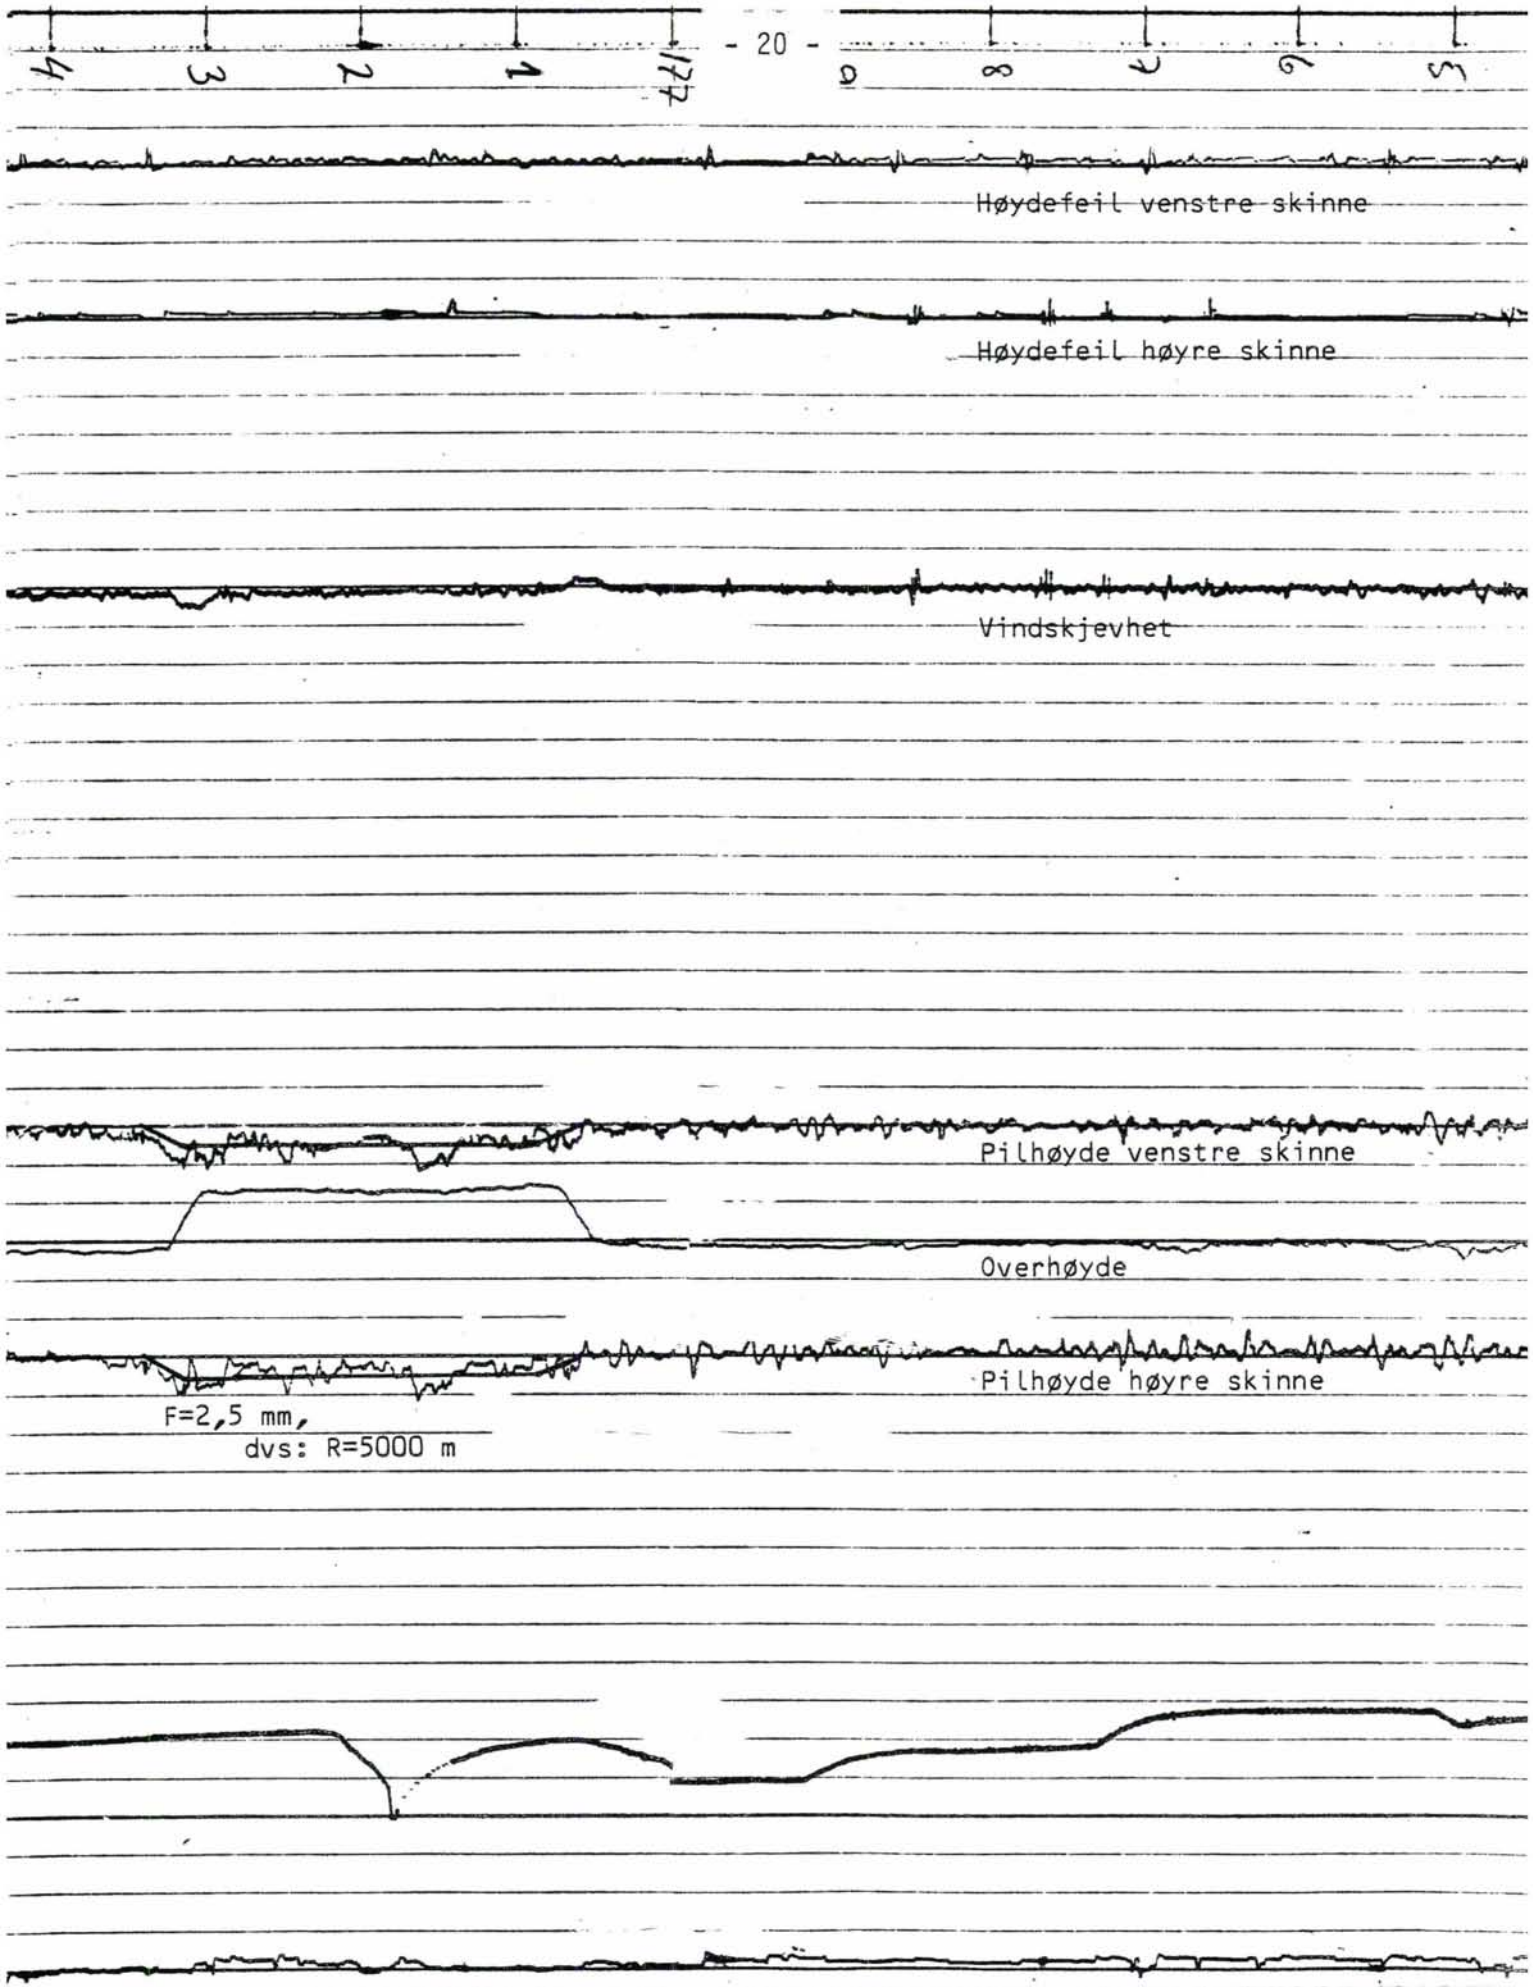 - 20 -
4 3 2 1 177 9 8 7 6 5
Høydefeil venstre skinne
Høydefeil høyre skinne
Vindskjevhet
Pilhøyde venstre skinne
Overhøyde
Pilhøyde høyre skinne
F=2,5 mm,
dvs: R=5000 m